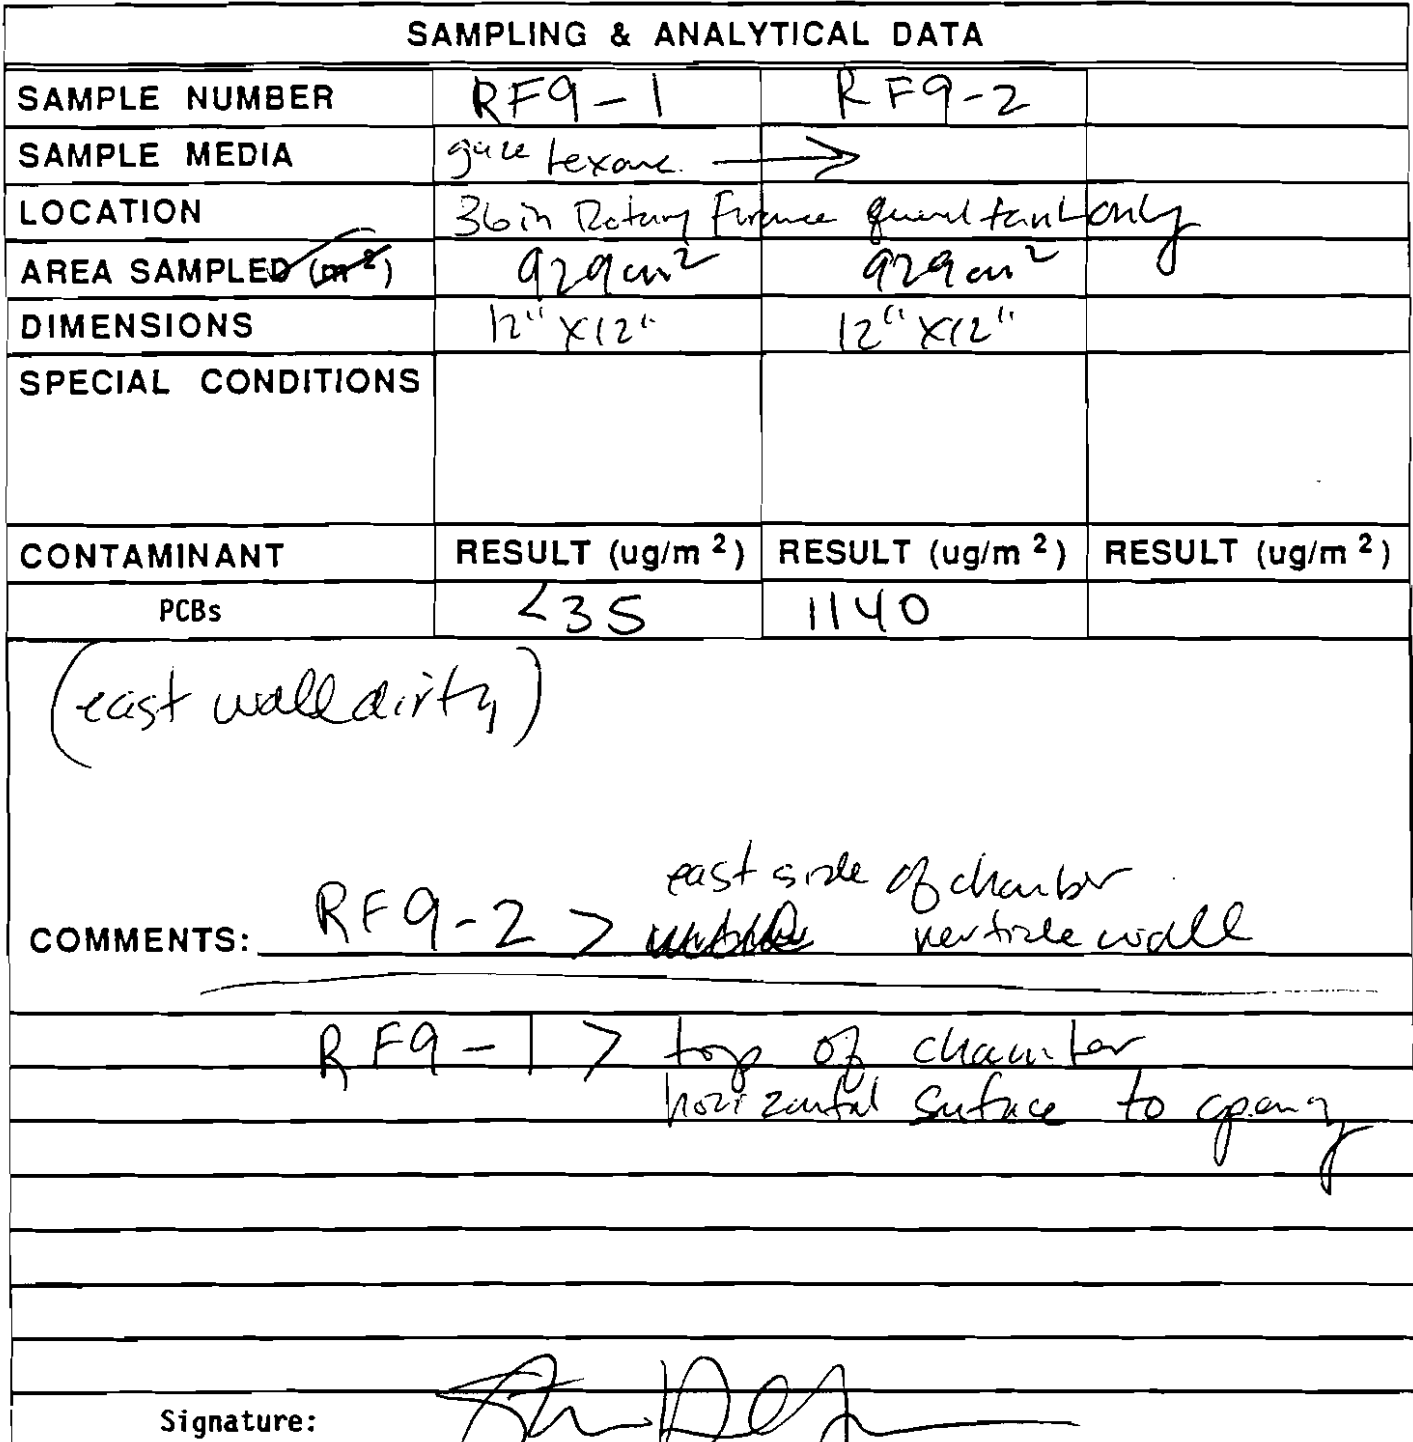 SAMPLING & ANALYTICAL DATA
SAMPLE NUMBER RF9-1 RF9-2
SAMPLE MEDIA →
LOCATION 36in Rotary Furnace only
AREA SAMPLED (m²) 929cm² 929cm²
DIMENSIONS 12" X12" 12" X12"
SPECIAL CONDITIONS
CONTAMINANT RESULT (ug/m ²) RESULT (ug/m ²) RESULT (ug/m ²)
PCBs <35 1140
(east wall dirty)
east side of chamber
COMMENTS: RF9-2 > verticle wall
RF9-1 > top of chamber
horizontal surface to
Signature: